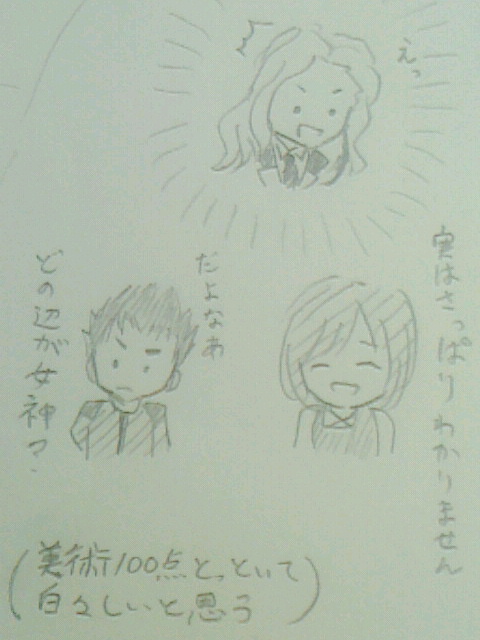 えっ
実はさっぱりわかりません
だよなぁ
どの辺が女神?
(美術100点とっといて
白々しいと思う)